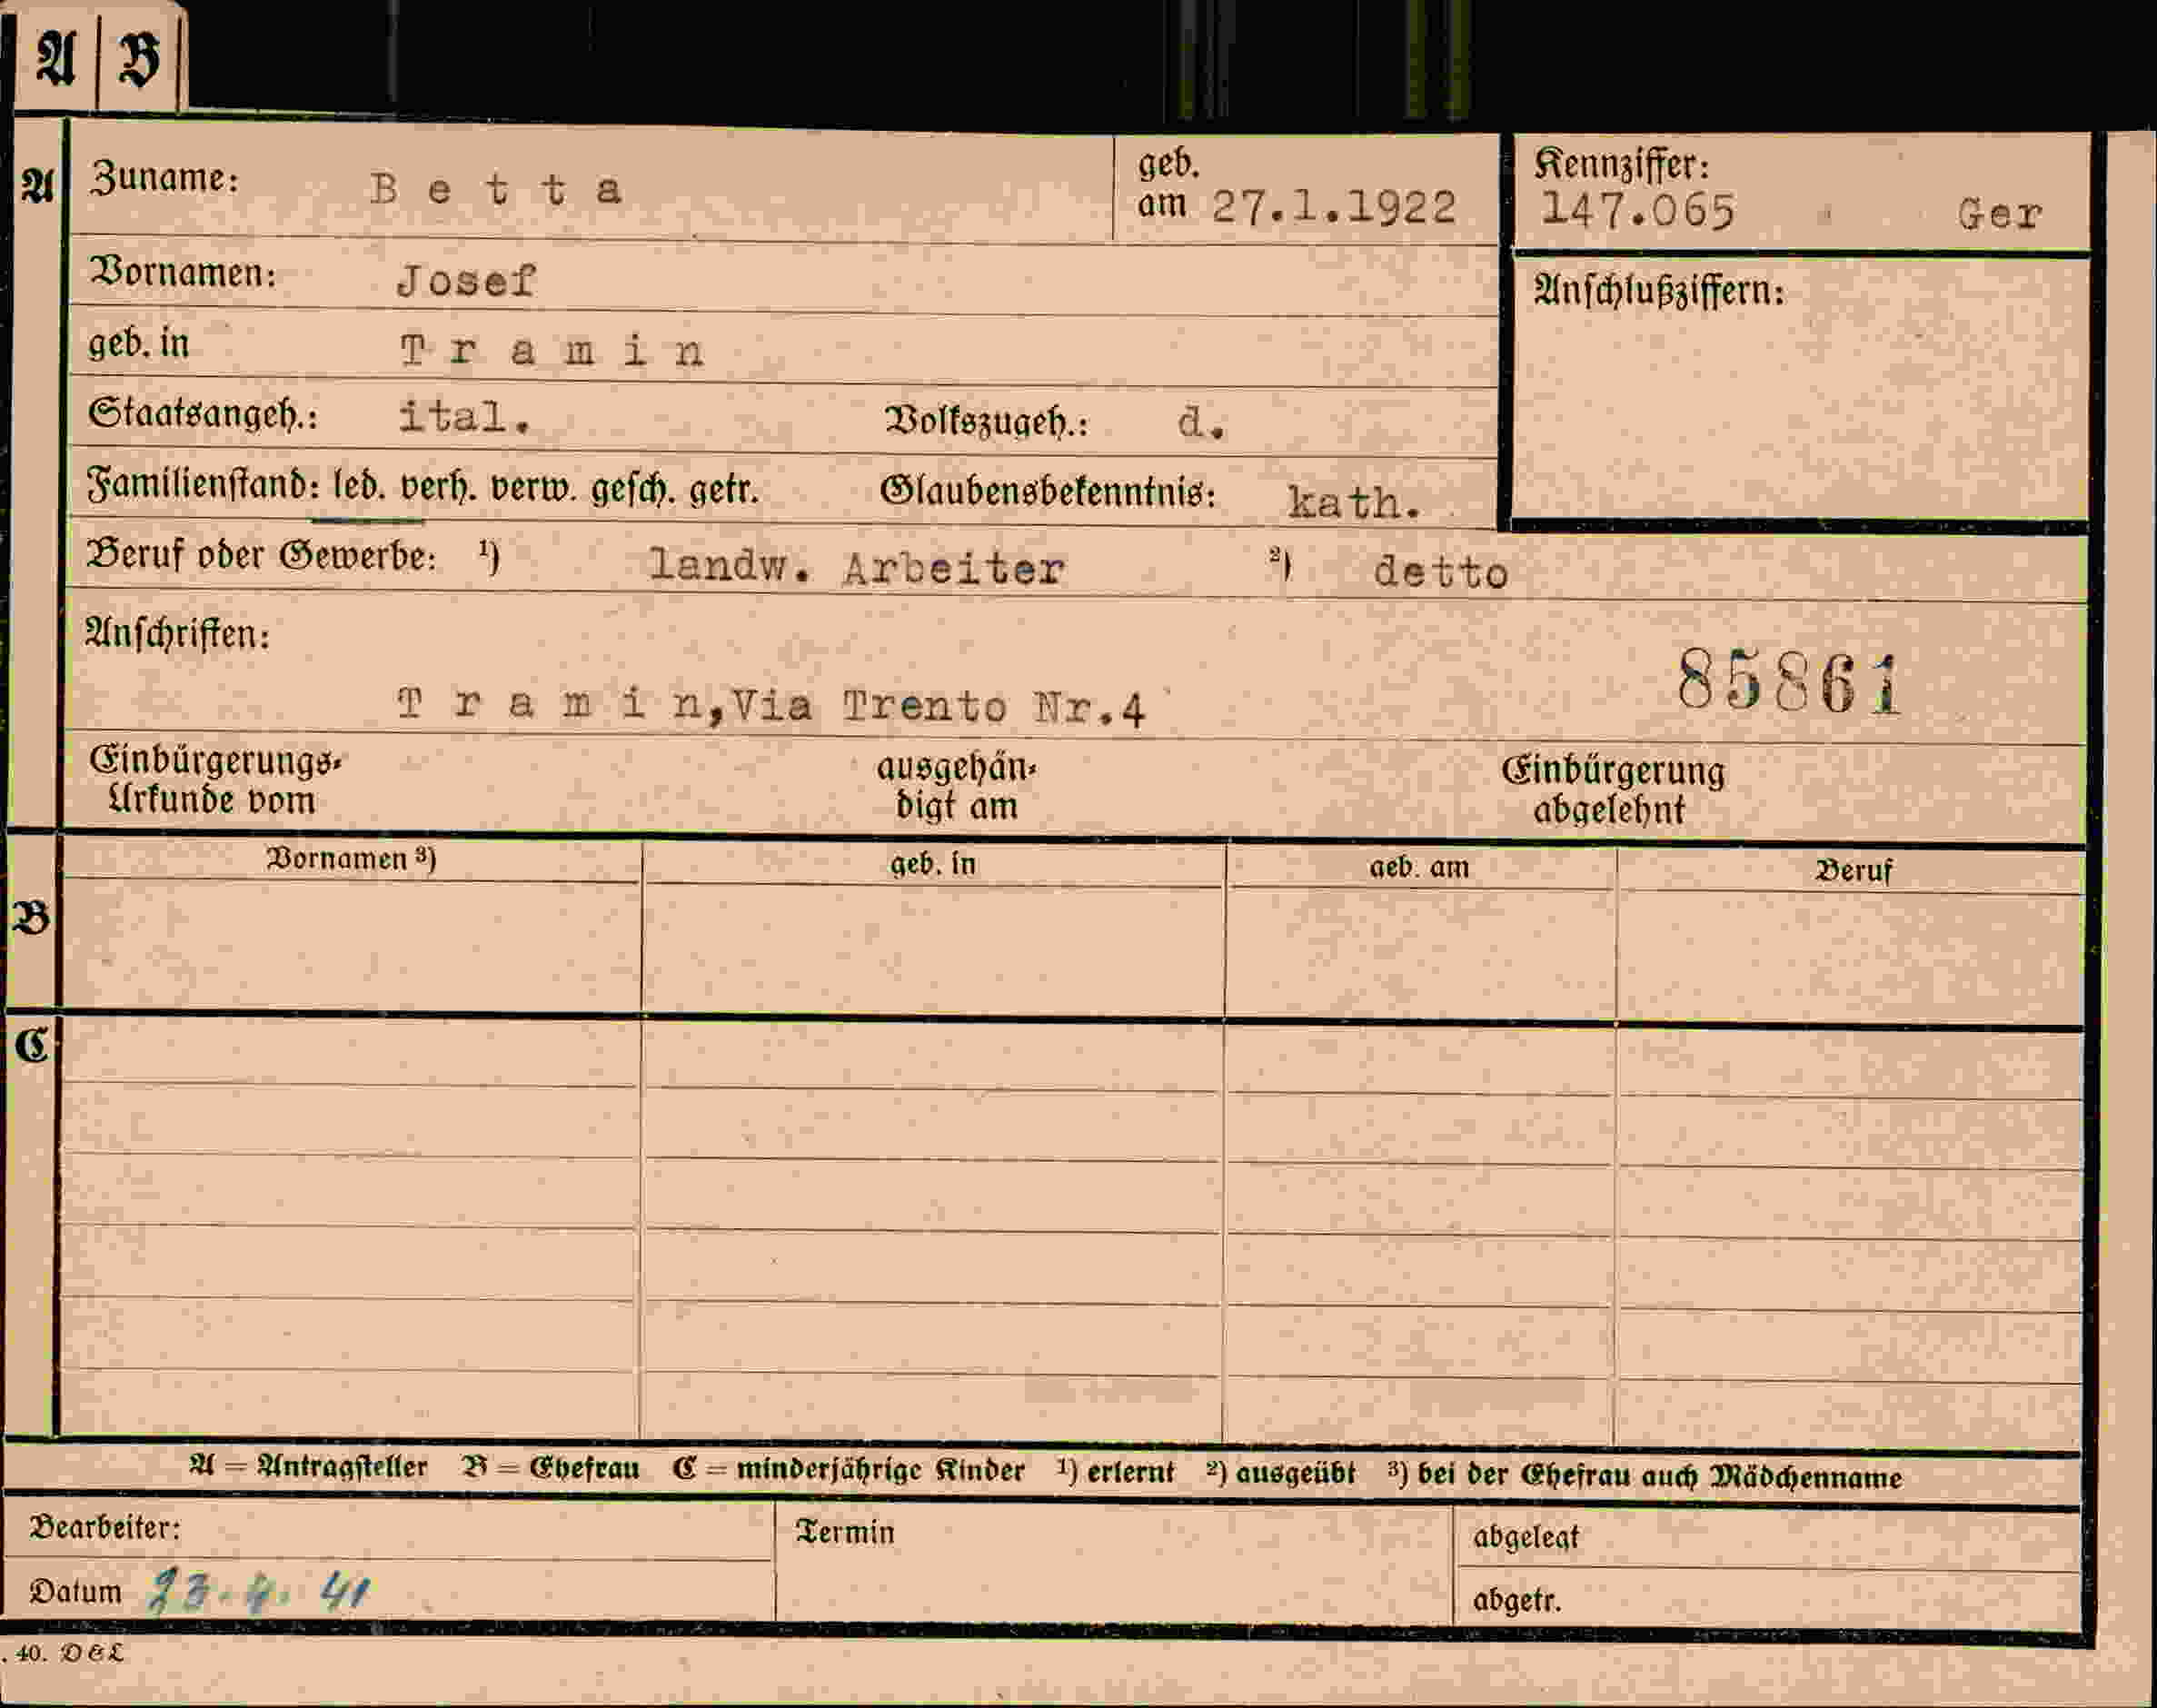 A B
A Zuname: Betta geb. am 27.1.1922 Kennziffer: 147.065 Ger
Vornamen: Josef Anschlußziffern:
geb. in Tramin
Staatsangeh.: ital. Volkszugeh.: d.
Familienstand: led. verh. verw. gesch. getr. Glaubensbekenntnis: kath.
Beruf oder Gewerbe: ¹) landw. Arbeiter ²) detto
Anschriften:
85861
Tramin, Via Trento Nr.4
Einbürgerungs- ausgehän- Einbürgerung
Urkunde vom digt am abgelehnt
Vornamen ³) geb. in geb. am Beruf
B
C
A = Antragsteller B = Ehefrau C = minderjährige Kinder ¹) erlernt ²) ausgeübt ³) bei der Ehefrau auch Mädchenname
Bearbeiter: Termin abgelegt
Datum 23.4.41 abgetr.
. 40. D&L